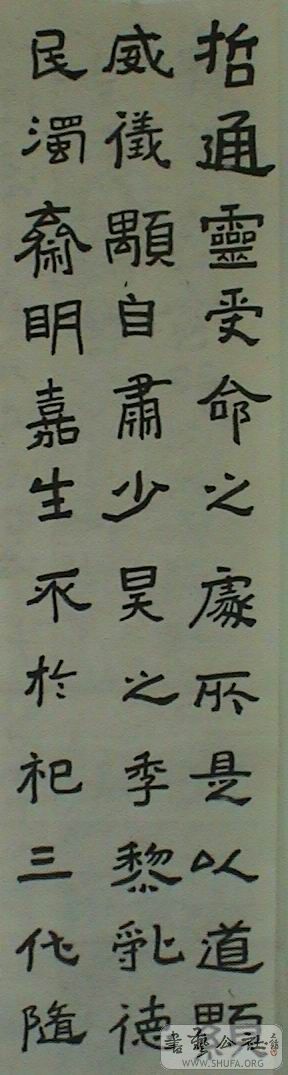 哲通靈受命之處所是以道
威儀顒自肅少昊之季黎亂德
民濁齋明嘉生不於祀三代隨
書藝公社
WWW.SHUFA.ORG